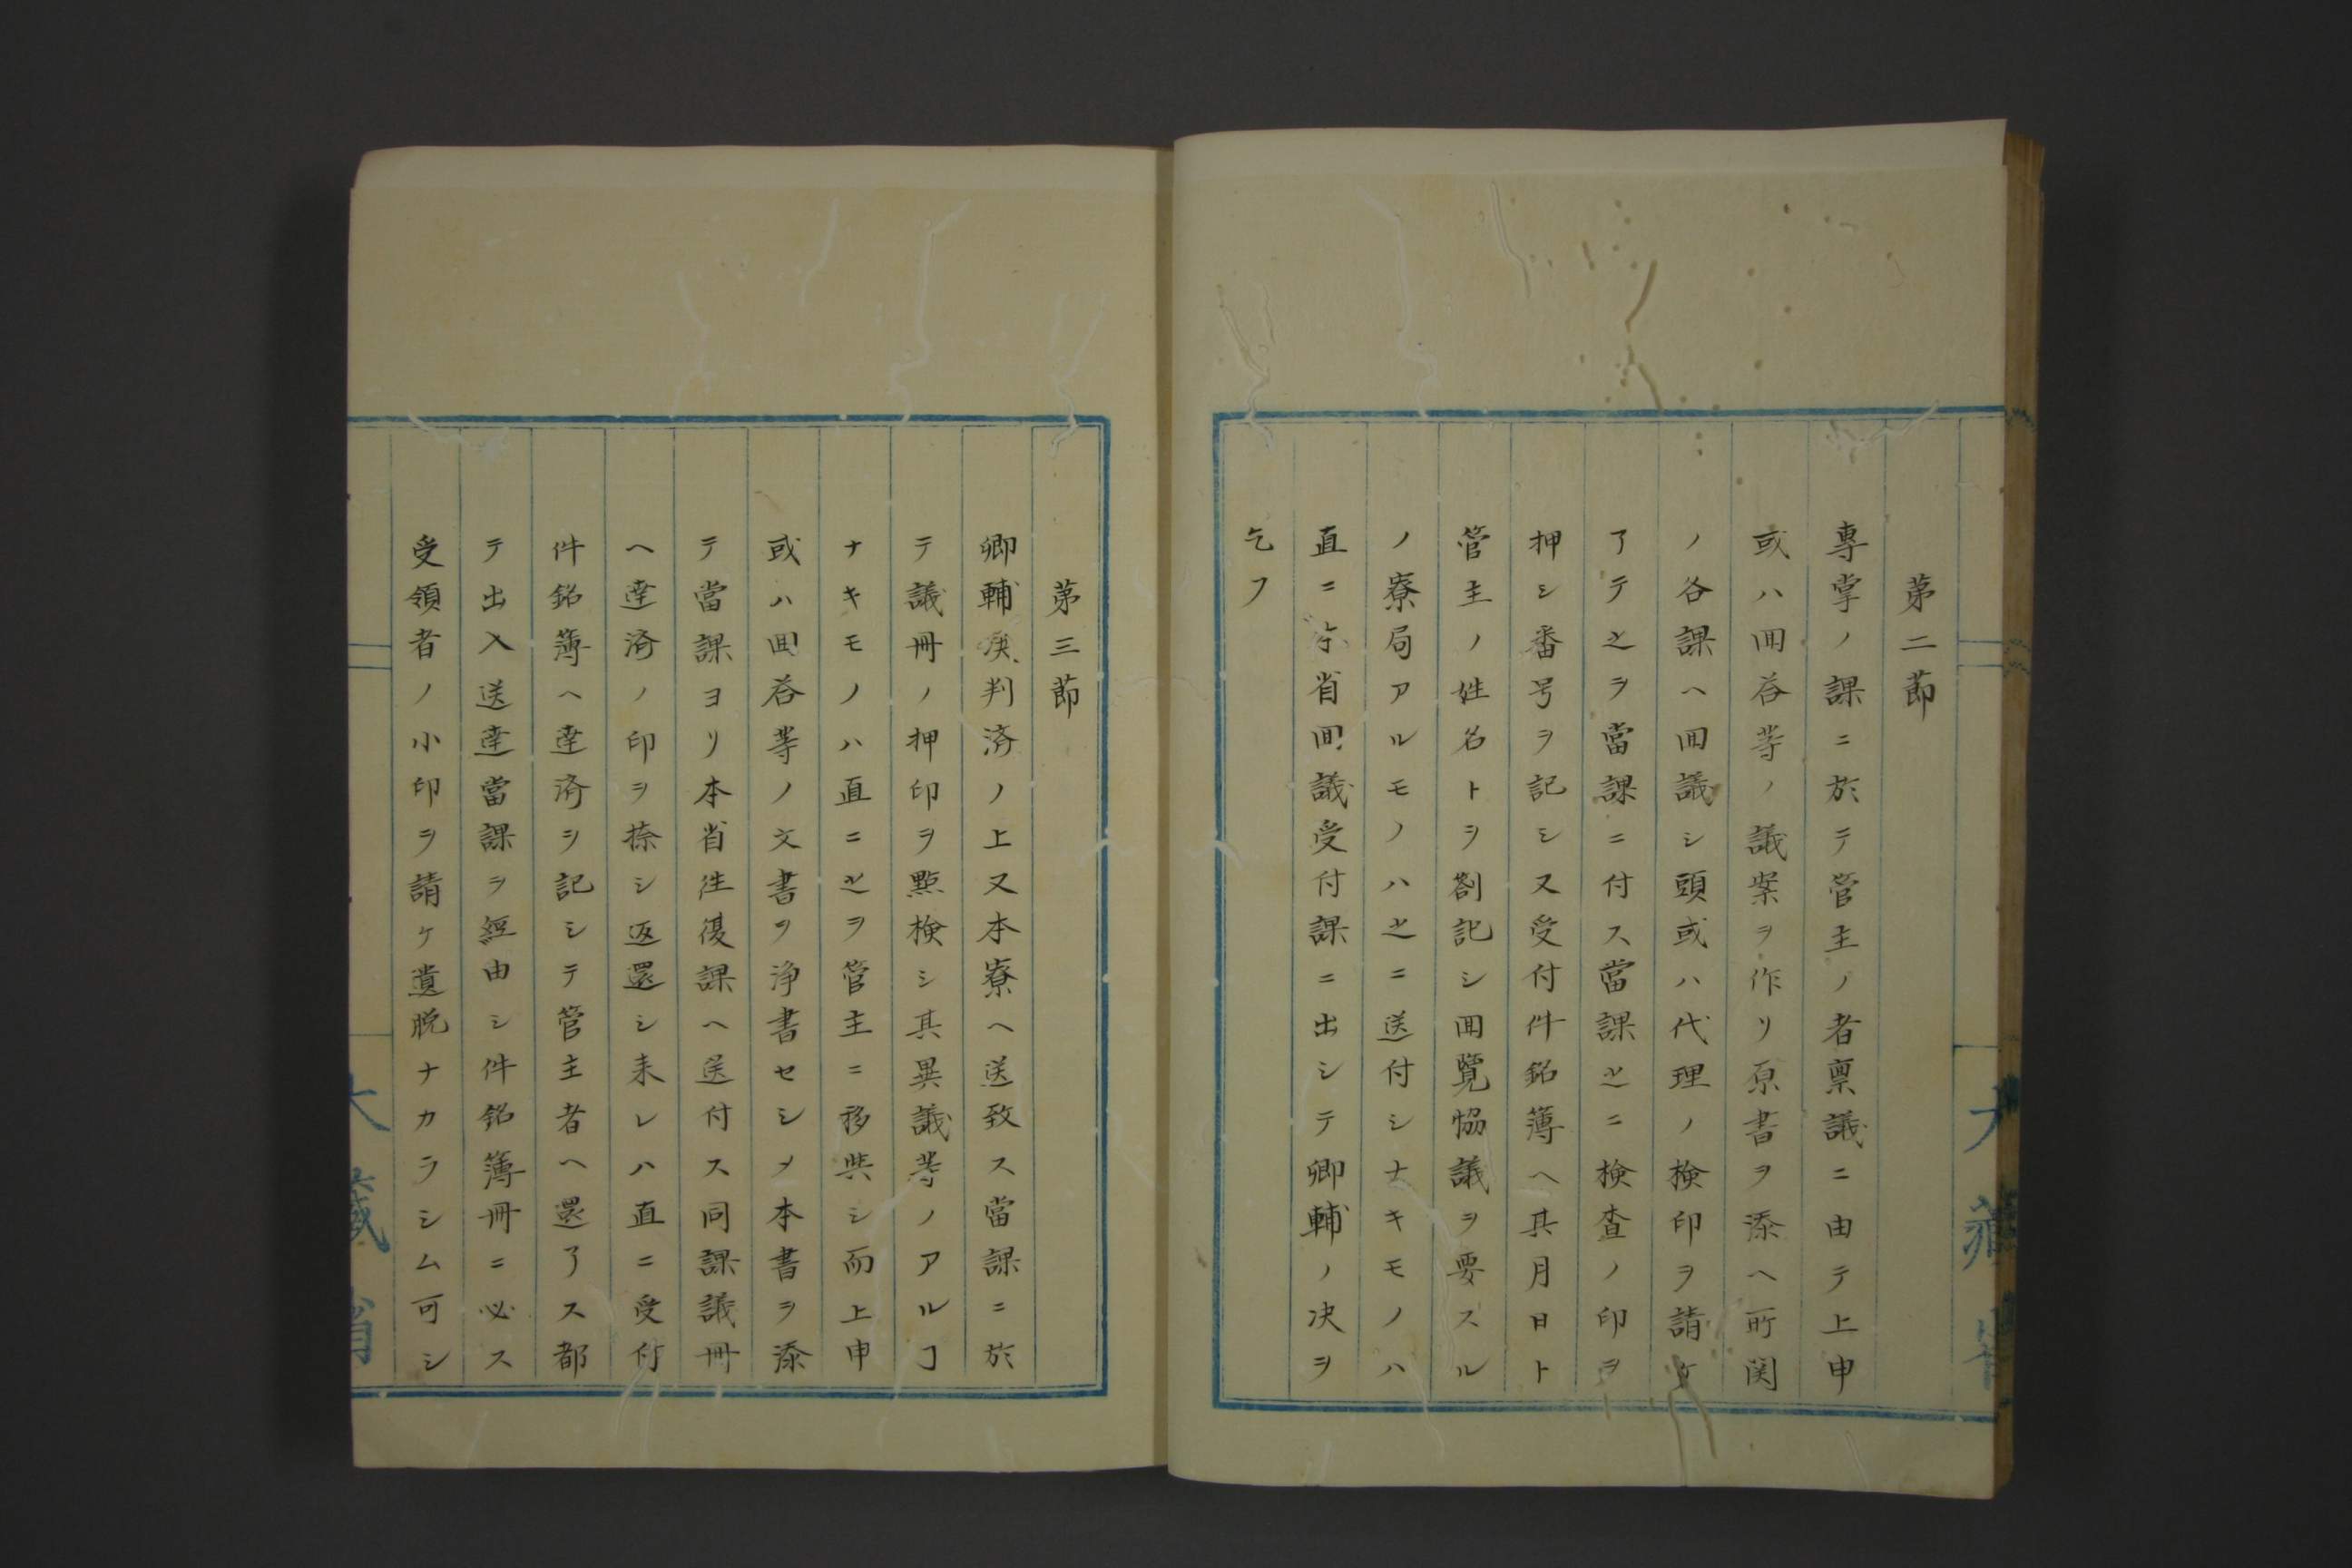 第二節
專掌ノ課ニ於テ管主ノ者稟議ニ由テ上申
或ハ回荅等ノ議案ヲ作リ原書ヲ添ヘ所関
ノ各課ヘ回議シ頭或ハ代理ノ検印ヲ請ケ
了テ之ヲ當課ニ付ス當課之ニ検査ノ印ヲ
押シ番号ヲ記シ又受付件銘簿ヘ其月日ト
管主ノ姓名トヲ劄記シ回覧協議ヲ要スル
ノ寮局アルモノハ之ニ送付シナキモノハ
直ニ本省回議受付課ニ出シテ卿輔ノ决ヲ
乞フ
大藏省
第三節
卿輔决判済ノ上又本寮ヘ送致ス當課ニ於
テ議冊ノ押印ヲ點検シ其異議等ノアルヿ
ナキモノハ直ニ之ヲ管主ニ移与シ而上申
或ハ回荅等ノ文書ヲ浄書セシメ本書ヲ添
テ當課ヨリ本省往復課ヘ送付ス同課議冊
ヘ達済ノ印ヲ捺シ返還シ来レハ直ニ受付
件銘簿ヘ達済ヲ記シテ管主者ヘ還了ス都
テ出入送達當課ヲ經由シ件銘簿冊ニ必ス
受領者ノ小印ヲ請ケ遺脱ナカラシム可シ
大藏省